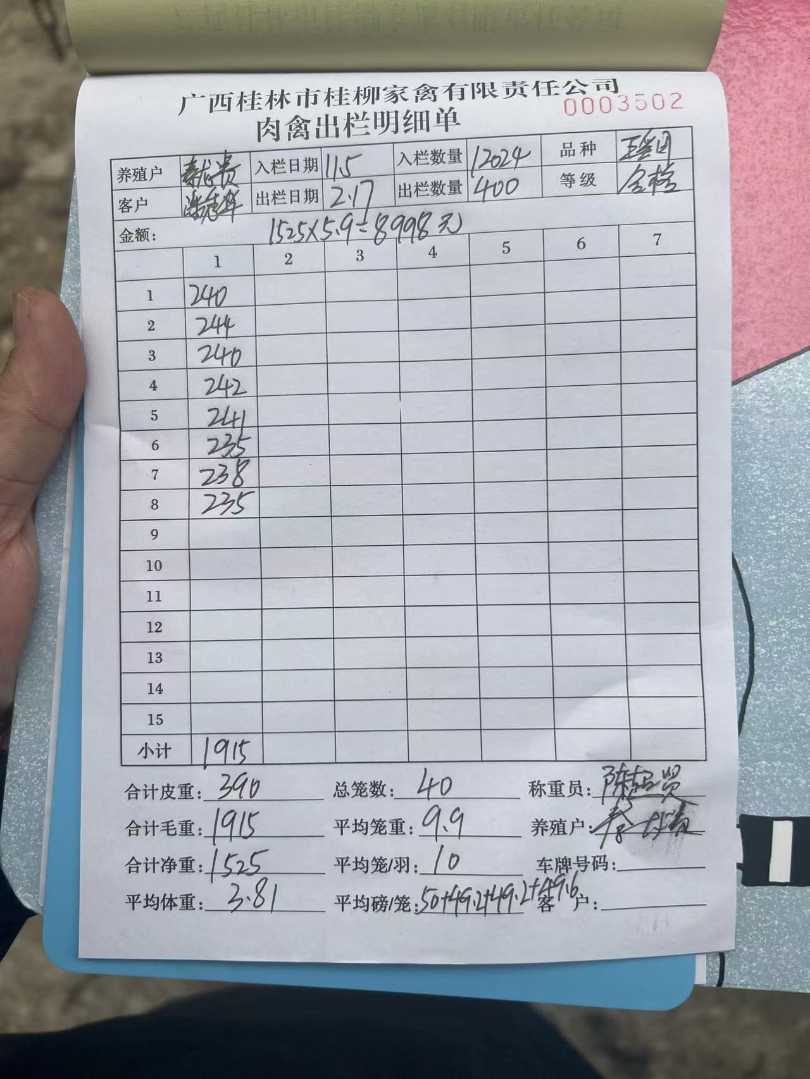 广西桂林市桂柳家禽有限责任公司
肉禽出栏明细单 0003502
养殖户 入栏日期 11.5 入栏数量 12024 品种
客户 出栏日期 2.17 出栏数量 400 等级 合格
金额: 1525×5.9=8998元
1 2 3 4 5 6 7
1 240
2 244
3 240
4 242
5 241
6 235
7 238
8 235
9
10
11
12
13
14
15
小计 1915
合计皮重: 390 总笼数: 40 称重员:
合计毛重: 1915 平均笼重: 9.9 养殖户:
合计净重: 1525 平均笼/羽: 10 车牌号码:
平均体重: 3.81 平均磅/笼: 50+49.2+49.2+49.6 客户: